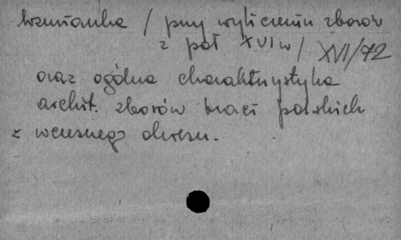 wzmianka / przy wyliczeniu zborów
z poł XVI w / XVI/72
oraz ogólna charakterystyka
archit. zborów braci polskich
z wczesnego okresu.